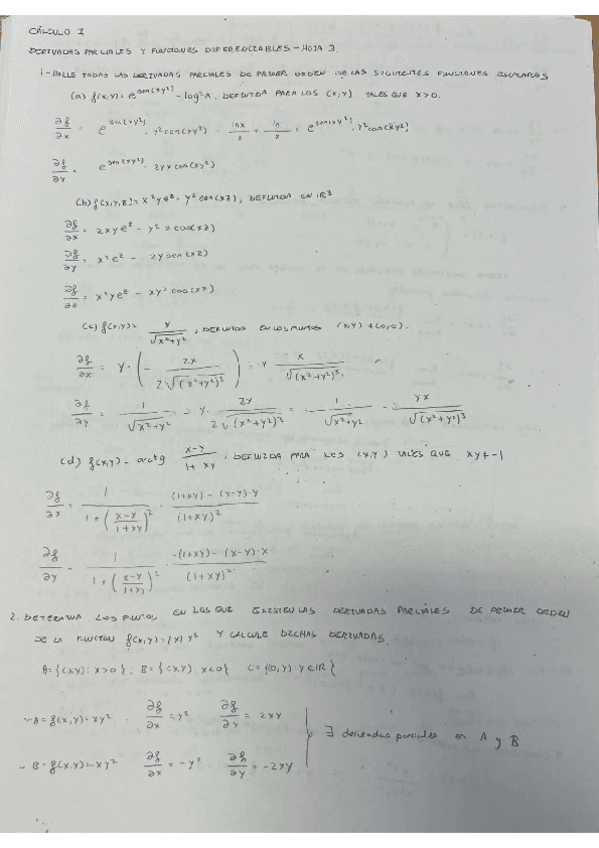 CÁLCULO I
DERIVADAS PARCIALES Y FUNCIONES DIFERENCIABLES - HOJA 3.
1- HALLE TODAS LAS DERIVADAS PARCIALES DE PRIMER ORDEN DE LAS SIGUIENTES FUNCIONES ESCALARES
(a) f(x,y) = e^{sen(xy²)} - log²x, DEFINIDA PARA LOS (x,y) TALES QUE x>0.
∂f/∂x = e^{sen(xy²)} · y²cos(xy²) - = e^{sen(xy²)} · y²cos(xy²)
∂f/∂y = e^{sen(xy²)} · 2yx cos(xy²)
(b) f(x,y,z) = x²ye^z - y² sen(xz), DEFINIDA EN IR³
∂f/∂x = 2xye^z - y² z cos(xz)
∂f/∂y = x²e^z - 2y sen(xz)
∂f/∂z = x²ye^z - xy² cos(xz)
(c) f(x,y) = y/√(x²+y²), DEFINIDA EN LOS PUNTOS (x,y) ≠ (0,0).
∂f/∂x = y · (- 2x/2√(x²+y²)³) = - y x/√(x²+y²)³
∂f/∂y = 1/√(x²+y²) - y · 2x/2√(x²+y²)³ = 1/√(x²+y²) - yx/√(x²+y²)³
(d) f(x,y) = arctg (x-y)/(1+xy), DEFINIDA PARA LOS (x,y) TALES QUE xy ≠ -1
∂f/∂x = 1/(1+((x-y)/(1+xy))²) · ((1+xy) - (x-y)·y)/(1+xy)²
∂f/∂y = 1/(1+((x-y)/(1+xy))²) · (-(1+xy) - (x-y)·x)/(1+xy)²
2. DETERMINA LOS PUNTOS EN LOS QUE EXISTEN LAS DERIVADAS PARCIALES DE PRIMER ORDEN
DE LA FUNCION f(x,y) = |x| y² Y CALCULE DICHAS DERIVADAS.
A = {(x,y): x>0}; B = {(x,y): x<0} C = {(0,y): y∈IR}
~ A = f(x,y) = xy² : ∂f/∂x = y² ∂f/∂y = 2xy
∃ derivadas parciales en A y B
~ B = f(x,y) = -xy² ∂f/∂x = -y² ∂f/∂y = -2xy